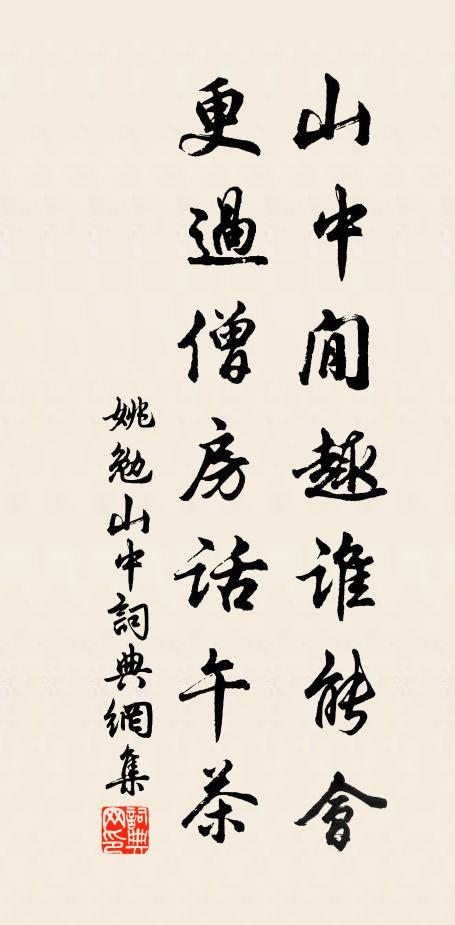 山中閒趣誰能會
更過僧房話午茶
姚勉山中詞典網集
詞典网印